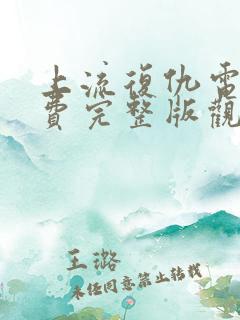 上流復仇電
費完整版觀
王璐
未经同意禁止转载